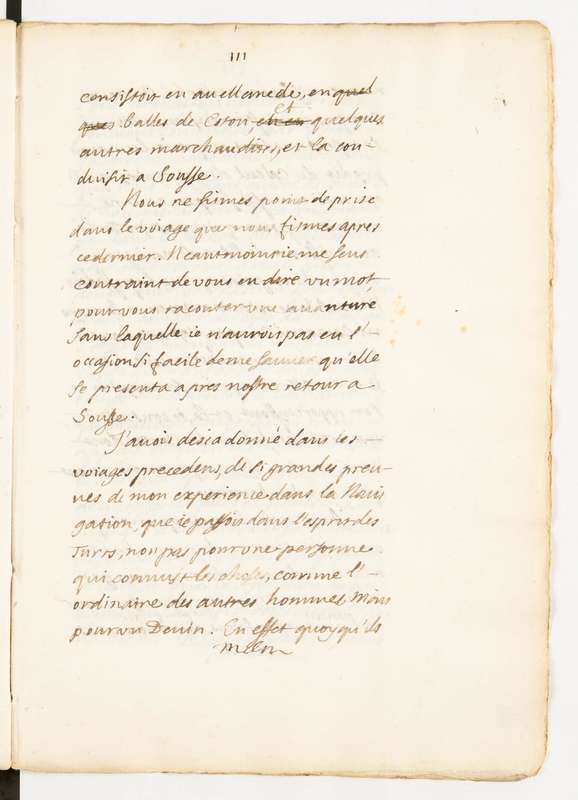 111
consistoit en avellanede, en quel
ques balles de Coton, et en et quelques
autres marchandises, et la con-
duisit a Sousse.
Nous ne fismes point de prise
dans le voiage que nous fismes apres
ce dernier. Neantmoins ie me sens
contraint de vous en dire vn mot,
pour vous raconter vne avanture
sans laquelle ie n'aurois pas eu l'-
occasion si facile de me sauver qu'elle
se presenta apres nostre retour a
Sousse.
J'avois desia donné dans les
voiages precedens, de si grandes preu-
ves de mon experience dans la Navi
gation, que ie passois dans l'esprit des
Turcs, non pas pour vne personne
qui connust les choses, comme l'-
ordinaire des autres hommes, Mais
pour vn Devin. En effet quoy qu'ils